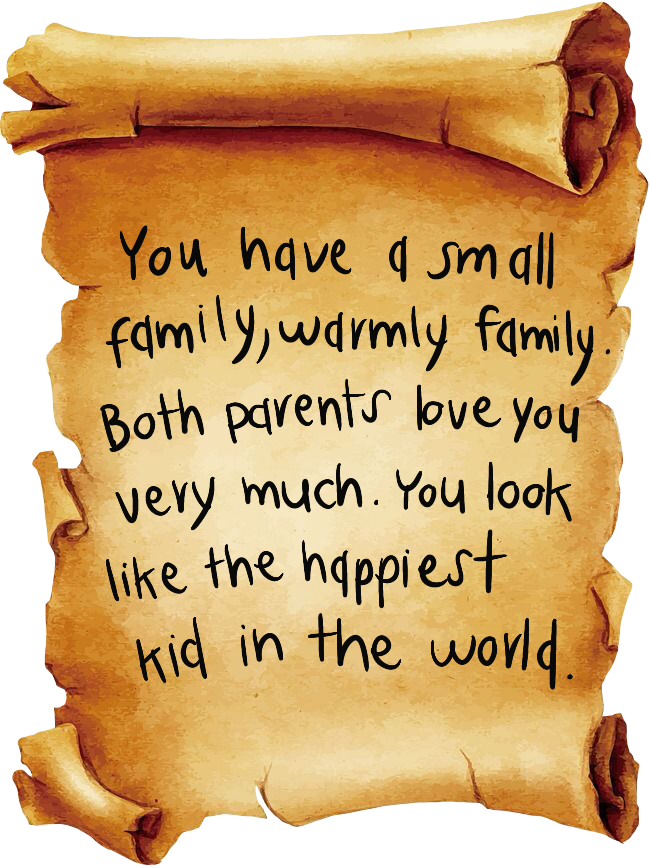 You have a small
family, warmly family.
Both parents love you
very much. You look
like the happiest
kid in the world.